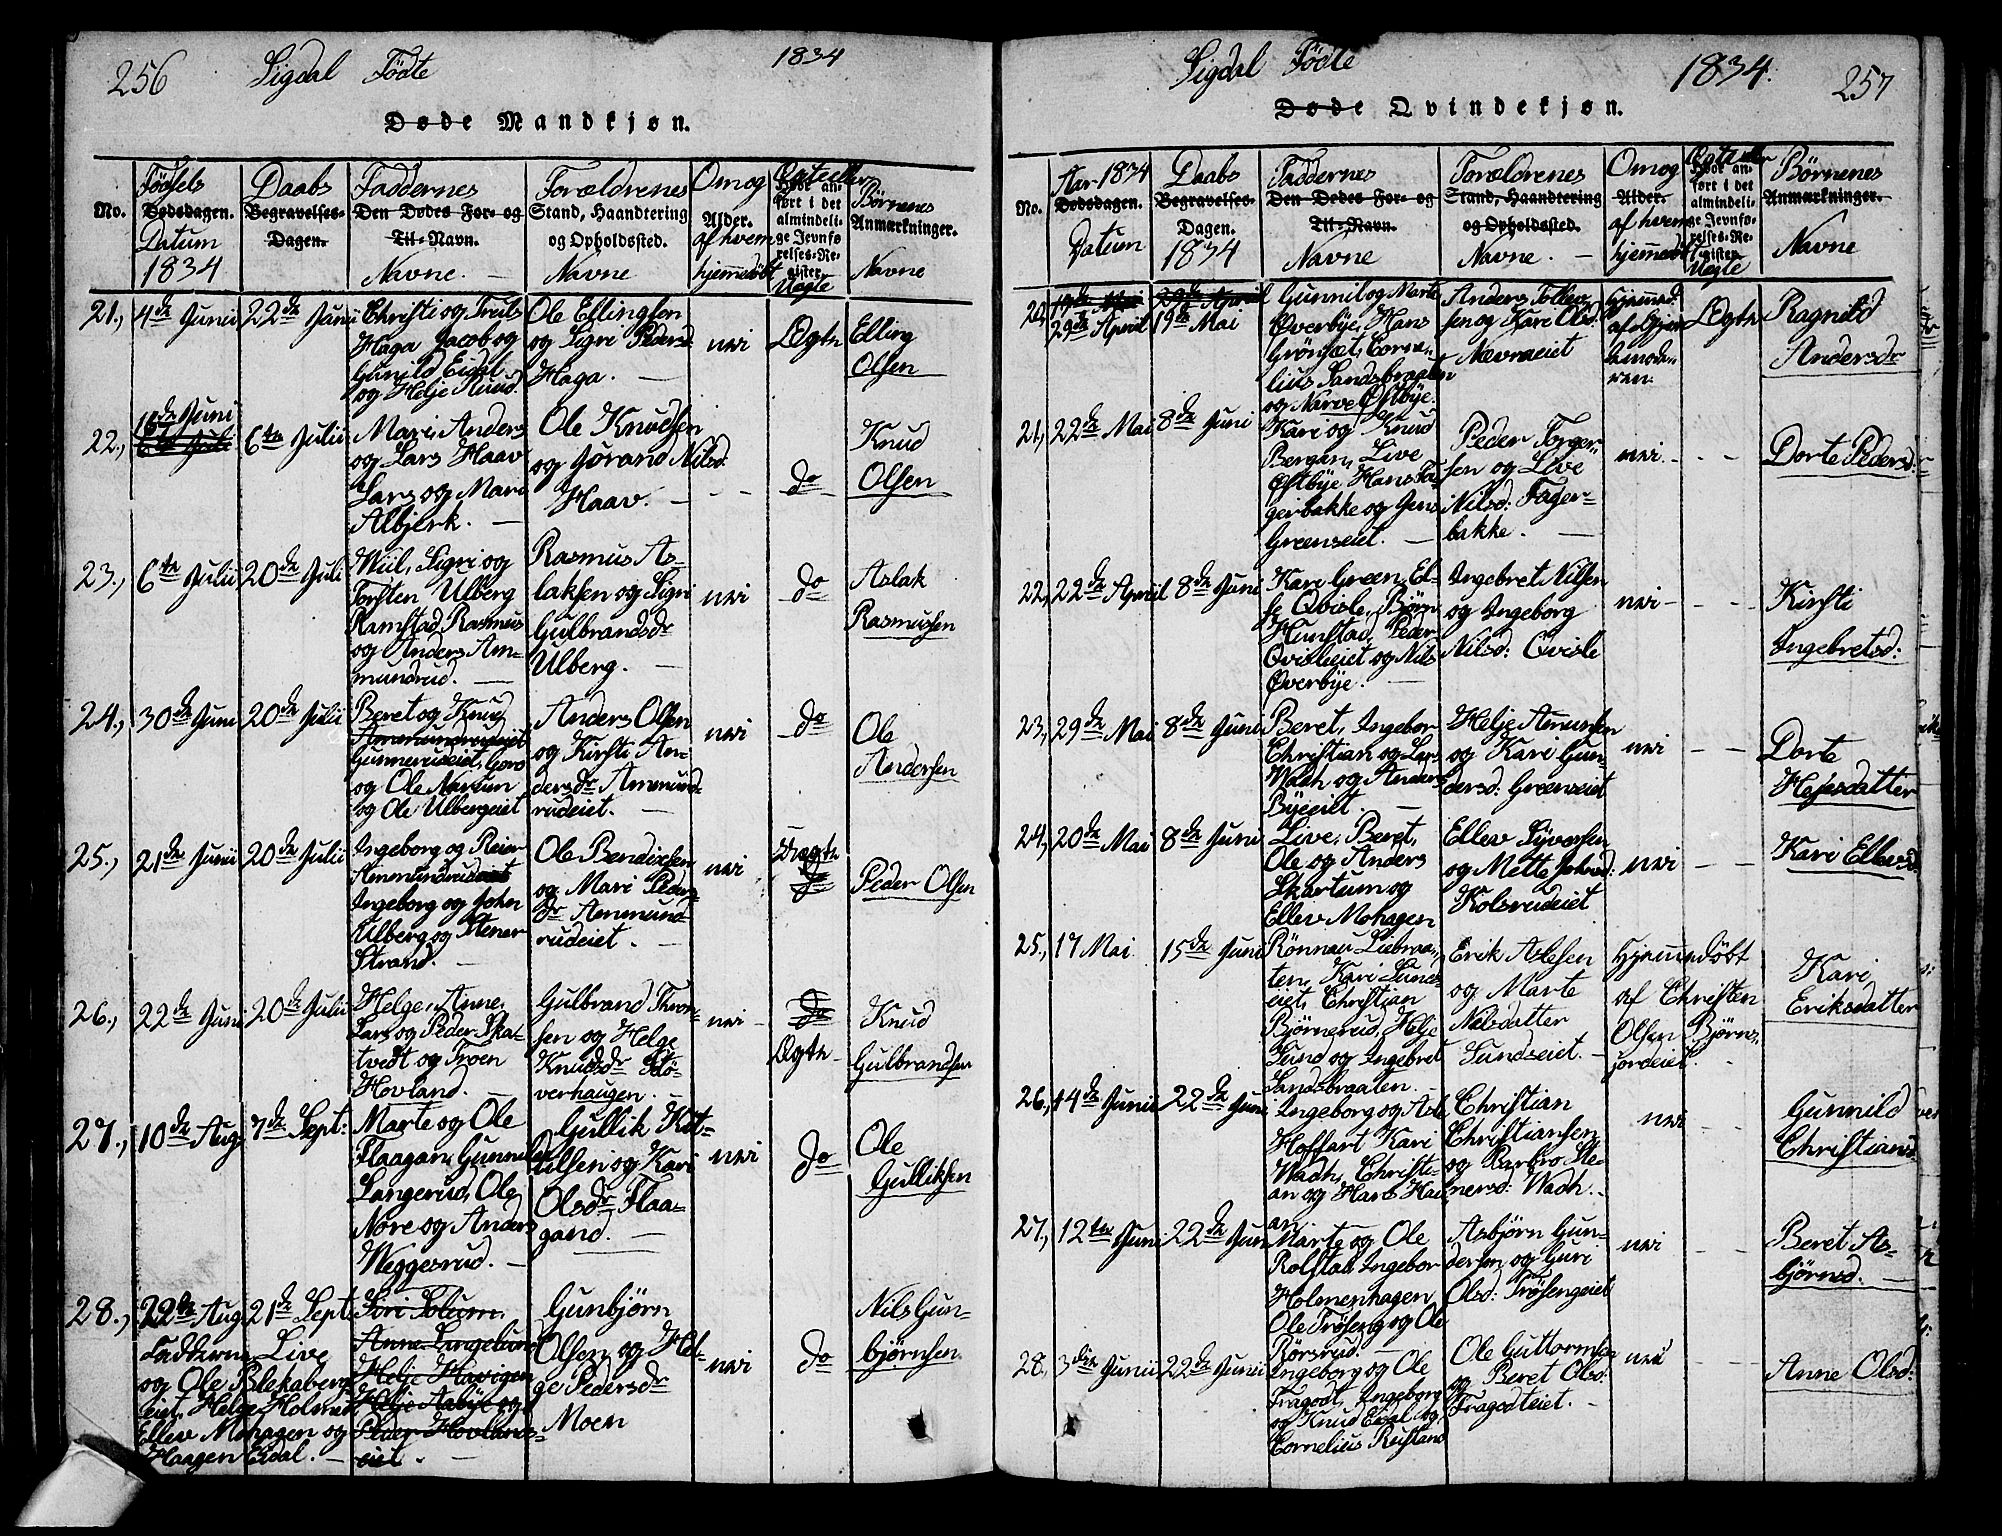 256 Sigdal Födte 1834
Døde Mandkjøn.
No.
Födsels
Dødsdagen.
Datum
1834
Daabs
Begravelses-
Dagen.
Faddernes
Den Dødes For- og
Til-Navn.
Navne.
Forældrenes
Stand, Haandtering
og Opholdssted.
Navne
Om og
Alder.
af hvem
hjemmedöbt
Ægte eller
Hvor an-
ført i det
almindeli-
ge Jevnfø-
relses-Re-
gister
Uægte
Börnenes
Anmærkninger.
Navne
21., 4de Junii 22de Junii
Christi og Truls
Haga Jacob og
Gunild Eidal
og Helje Ruud.
Ole Ellingsen
og Sigri Pedersd.
Haga. —
nei
Ægte
Elling
Olsen
22., 16de Juni
6te Juli
6te Julii
Mari, Anders
og Lars Haav
Lars og Mari
Albjerk. —
Ole Knudsen
og Jörand Nilsd.
Haav. —
- -
do
Knud
Olsen
23., 6te Julii 20de Juli
Wiil, Sigri og
Torsten Ulberg
Ramstad, Rasmus
og Anders Am-
mundrud. —
Rasmus As-
laksen og Sigri
Gulbrandsdr
Ulberg. —
nei
do
Aslak
Rasmussen
24., 30de Juni 20de Julii
Beret og Knud
Ammundrudeiet
Gunnerudeiet, Goro
og Ole Narum
og Ole Ulbergeiet
Anders Olsen
og Kirsti An-
dersdr Ammund-
rudeiet. —
nei
do
Ole
Andersen
25., 21de Junii 20de Julii
Ingeborg og Reier
Ammundrudeiet
Ingeborg og John
Ulberg og Stener
Strand. —
Ole Bendixsen
og Mari Peders-
dr Ammund-
rudeiet. —
nei
Uægte
do
Peder Olsen
26., 22de Juni 20de Julii
Helge, Anne,
Lars og Peder Skat-
tvedt og Troen
Hovland. —
Gulbrand Thron-
sen og Helge
Knudsdr Stö-
verhaugen. —
nei
do
Ægte
Knud
Gulbrandsen
27., 10de Aug. 7de Sept:
Marte og Ole
Flaagan, Gunnild
Langerud, Ole
Nore og Anders
Weggesrud. —
Gullik Kit-
tilsen og Kari
Olsdr Flaa-
gand. —
nei
do
Ole
Gulliksen
28., 22de Aug. 21de Sept.
Siri Solum,
Anne Langelund
Helje Havigen
Helje Aabye og
Peder Hovlands-
eiet. —
Fadderne Live
og Ole Blekaberg
eiet, Helge Holmen
Ellev Mohagen og
Haagen Eidal. —
Gunbjörn
Olsen og Hel-
ge Pedersdr
Moen
nei
do
Nils Gun-
björnsen
Sigdal Födte 1834. 257
Døde Qvindekjøn.
No.
Aar 1834
Dødsdagen.
Datum
Daabs
Begravelses-
Dagen.
1834
Faddernes
Den Dødes For- og
Til-Navn.
Navne
Forældrenes
Stand, Haandtering
og Opholdssted.
Navne. —
Om og
Alder.
af hvem
hjemmedöbt
Ægte eller
Hvor an-
ført i det
almindeli-
ge Jevnfø-
relses-Re-
gister
Uægte
Börnenes
Anmærkninger.
Navne
20, 19de Mai 29de April
29de April 19de Mai
Gunnil og Marte
Øverbye, Hans
Grönsæt, Corne-
lius Sandsbraaten
og Narve Østbye.
Anders Tollev-
sen og Kari Olsd.
Nævraeiet
Hjemmed.
af Gjor-
demode-
ren.
Ægte
Ragnild
Andersdr
21., 22de Mai 8de Juni
Kari og Knud
Bergan, Live
Østbye Hans Fa-
gerbakke og Jens
Greenseiet. —
Peder Torger-
sen og Live
Nilsd: Fager-
bakke. —
nei. - -
Dorte Pedersd:
22., 22de April 8de Juni
Kari Green, El-
se Qvisle, Björn
Hunstad, Peder
Qvisleeiet og Nils
Øverbye. —
Ingebret Nilsen
og Ingeborg
Nilsd: Qvisle
nei - - -
Kirsti
Ingebretsd:
23., 29de Mai 8de Juni
Beret, Ingebor
Christian og Lars
Wadh, og Anders
Byeeiet. —
Helje Amundsen
og Kari Gun-
dersd: Greenseiet
nei - -
Dorte
Heljesdatter
24., 20de Mai 8de Juni
Live, Beret,
Ole og Anders
Skartum og
Ellev Mohagen
Ellev Syversen
og Mette Johnsd:
Kolsrudeiet
nei - -
Kari Ellevsd
25., 17 Mai 15de Juni
Rönnau Liebraa-
ten, Kari Lunds-
eiet, Christian
Björnerud, Helje
Lund og Ingebret
Sandsbraaten. —
Erik Aslesen
og Marte
Nilsdatter
Lundseiet. —
Hjemmedöbt
af Christen
Olsen Björns-
jordeiet.
Kari
Eriksdatter
26., 14de Junii 22de Juni
Ingeborg og Asle
Hoffart Kari
Wadh, Christi-
an og Hans Hau-
an
Christian
Christiansen
og Barbro Ste-
nersd: Wadh. —
nei - -
Gunnild
Christiansd:
27., 12te Juni 22de Juni
Marte og Ole
Rolstad Ingebor
Holmenhagen
Ole Trösteng og Ole
Rörsrud. —
Asbjørn Gun-
dersen og Guri
Olsd: Frösengeiet
nei - -
Beret As-
björnsd. —
28. 3die Junii 22de Junii
Ingeborg og Ole
Fragodt, Ingeborg
og Knud Eidal og
Cornelius Reistand
Ole Guttormsen
og Beret Olsd:
Fragodteiet. —
nei - -
Anne Olsd: